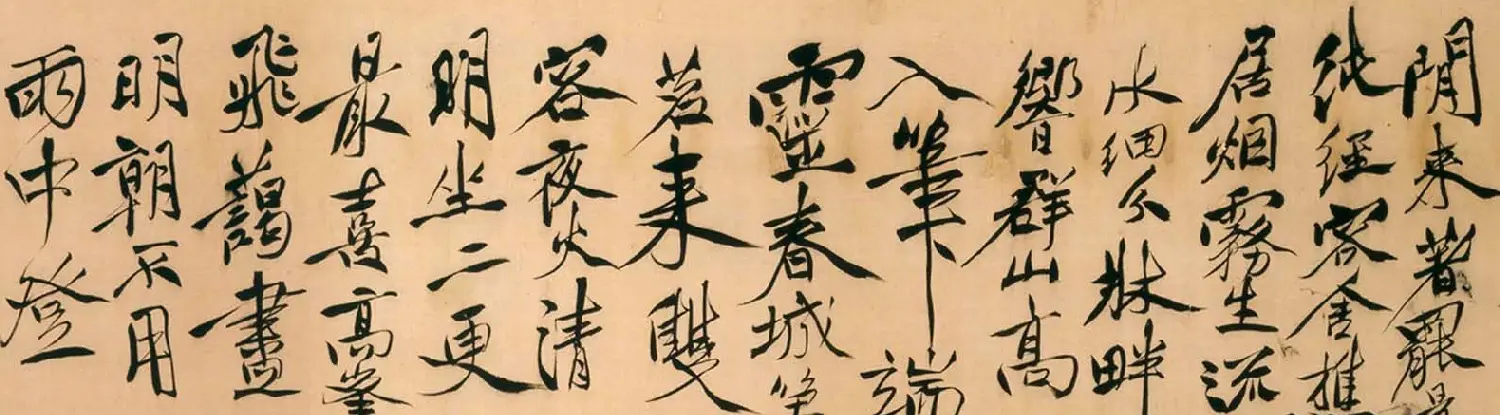 閒来著罷
經客舍推
居烟霧生流
水細分牀畔
響群山高
入筆下端
靈春城
茗来雙
容夜火清
明坐二更
最喜高
飛藹畫
明朝不用
雨中登